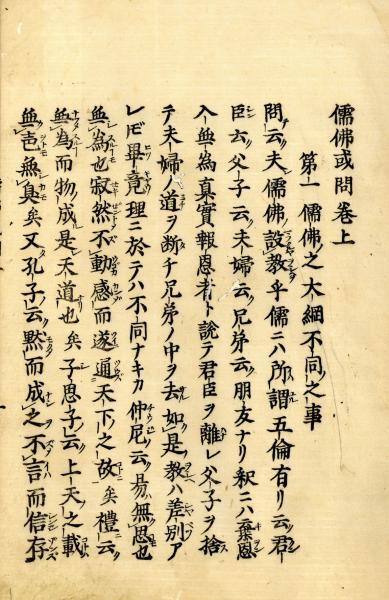 儒佛或問卷上
第一 儒佛之大綱不同之事
問云夫儒佛設教乎儒ニハ所謂五倫有リ云君
臣云父子云夫婦云兄弟云朋友ナリ釈ニハ棄恩
入無為真實報恩者ト説テ君臣ヲ離レ父子ヲ捨
テ夫婦ノ道ヲ断チ兄弟ノ中ヲ去如是教ハ差別ア
レ𪜈畢竟理ニ於テハ不同ナキカ仲尼云易無思也
無為也寂然不動感而遂通天下之故矣禮云
無為而物成是天道也矣子思子云上天之載
無声無臭矣又孔子云黙而成之不言而信存